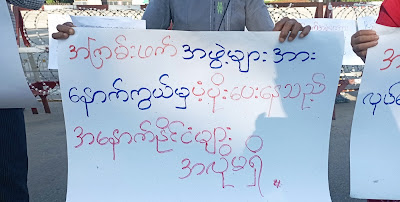 အကြမ်းဖက် အဖွဲ့များအား
နောက်ကွယ်မှပံ့ပိုးပေးနေသည့်
အနောက်နိုင်ငံများ
အလိုမရှိ။
လုပ်